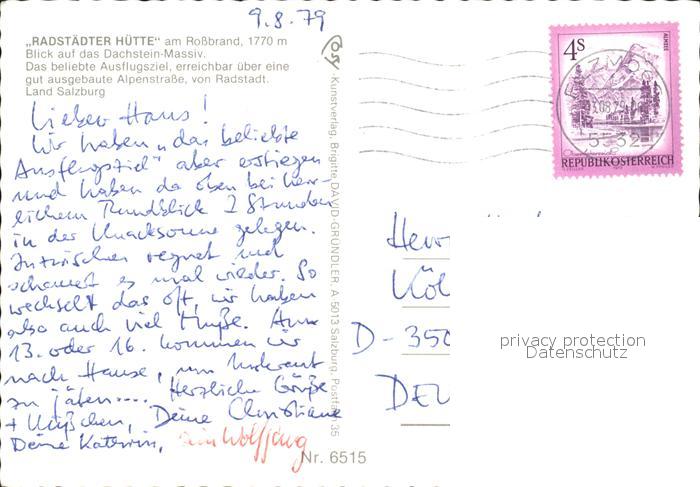 9.8.79
„RADSTÄDTER HÜTTE“ am Roßbrand, 1770 m
Blick auf das Dachstein-Massiv.
Das beliebte Ausflugsziel, erreichbar über eine
gut ausgebaute Alpenstraße, von Radstadt.
Land Salzburg
Lieber Hans!
Wir haben „das beliebte
Ausflugsziel“ aber erstiegen
und haben da oben bei herr-
lichem Rundblick 2 Stunden
in der Knacksonne gelegen.
Inzwischen regnet und
schauert es mal wieder. So
wechselt das oft, wir haben
also auch viel Muße. Am
13. oder 16. kommen wir
nach Hause, um Unkraut
zu jäten.... Herzliche Grüße
+ Küßchen, Deine Christiane
Deine Katerin, Wolfgang
Kunstverlag, Brigitte DAVID-GRÜNDLER, A 5013 Salzburg, Postf 35
Nr. 6515
4S
ALMSEE
REPUBLIK ÖSTERREICH
FILZMOOS
5532
Herr
Köl
D - 350
DEU
privacy protection
Datenschutz